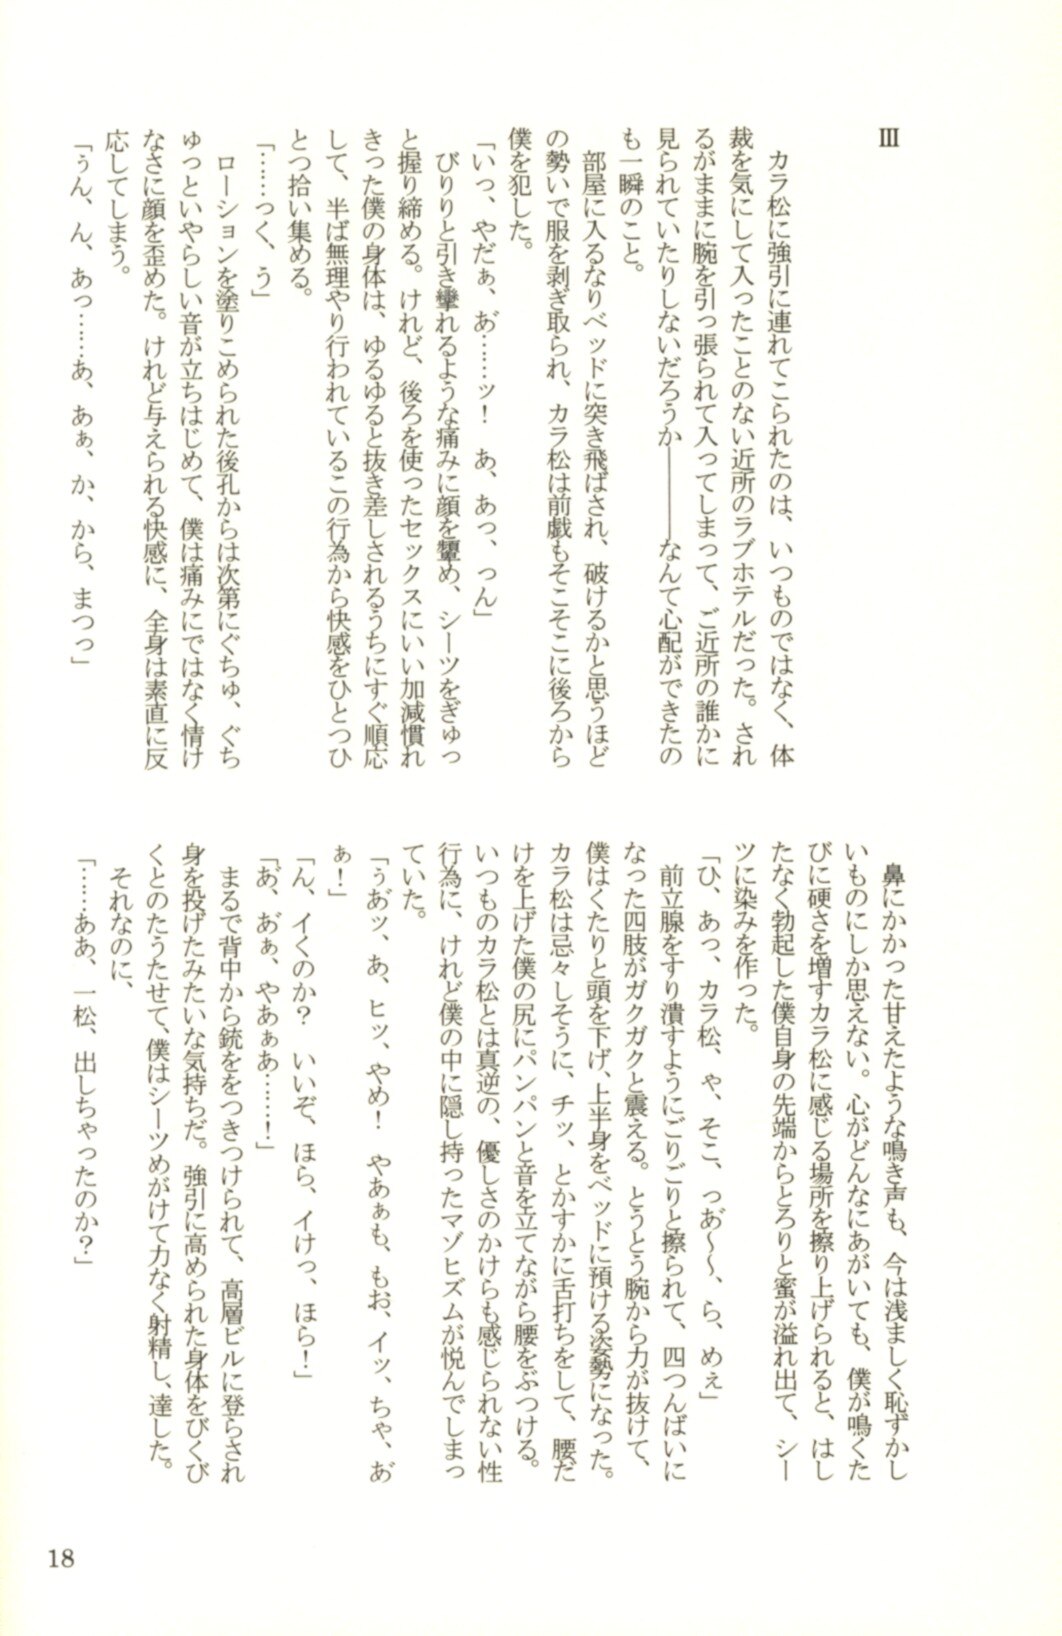 Ⅲ
　カラ松に強引に連れてこられたのは、いつものではなく、体
裁を気にして入ったことのない近所のラブホテルだった。され
るがままに腕を引っ張られて入ってしまって、ご近所の誰かに
見られていたりしないだろうか――――なんて心配ができたの
も一瞬のこと。
　部屋に入るなりベッドに突き飛ばされ、破けるかと思うほど
の勢いで服を剥ぎ取られ、カラ松は前戯もそこそこに後ろから
僕を犯した。
「いっ、やだぁ、あ゛……ッ！　あ、あっ、っん」
　びりりと引き攣れるような痛みに顔を顰め、シーツをぎゅっ
と握り締める。けれど、後ろを使ったセックスにいい加減慣れ
きった僕の身体は、ゆるゆると抜き差しされるうちにすぐ順応
して、半ば無理やり行われているこの行為から快感をひとつひ
とつ拾い集める。
「……っく、う」
　ローションを塗りこめられた後孔からは次第にぐちゅ、ぐち
ゅっといやらしい音が立ちはじめて、僕は痛みにではなく情け
なさに顔を歪めた。けれど与えられる快感に、全身は素直に反
応してしまう。
「ぅん、ん、あっ……あ、あぁ、か、から、まつっ」
　鼻にかかった甘えたような鳴き声も、今は浅ましく恥ずかし
いものにしか思えない。心がどんなにあがいても、僕が鳴くた
びに硬さを増すカラ松に感じる場所を擦り上げられると、はし
たなく勃起した僕自身の先端からとろりと蜜が溢れ出て、シー
ツに染みを作った。
「ひ、あっ、カラ松、ゃ、そこ、っあ゛～～、ら、めぇ」
　前立腺をすり潰すようにごりごりと擦られて、四つんばいに
なった四肢がガクガクと震える。とうとう腕から力が抜けて、
僕はくたりと頭を下げ、上半身をベッドに預ける姿勢になった。
カラ松は忌々しそうに、チッ、とかすかに舌打ちをして、腰だ
けを上げた僕の尻にパンパンと音を立てながら腰をぶつける。
いつものカラ松とは真逆の、優しさのかけらも感じられない性
行為に、けれど僕の中に隠し持ったマゾヒズムが悦んでしまっ
ていた。
「ぅあ゛ッ、あ、ヒッ、やめ！　やあぁも、もお、イッ、ちゃ、あ゛
ぁ！」
「ん、イくのか？　いいぞ、ほら、イけっ、ほら！」
「あ゛、あ゛ぁ、やあぁあ……！」
　まるで背中から銃ををつきつけられて、高層ビルに登らされ
身を投げたみたいな気持ちだ。強引に高められた身体をびくび
くとのたうたせて、僕はシーツめがけて力なく射精し、達した。
　それなのに、
「……ああ、一松、出しちゃったのか？」
18